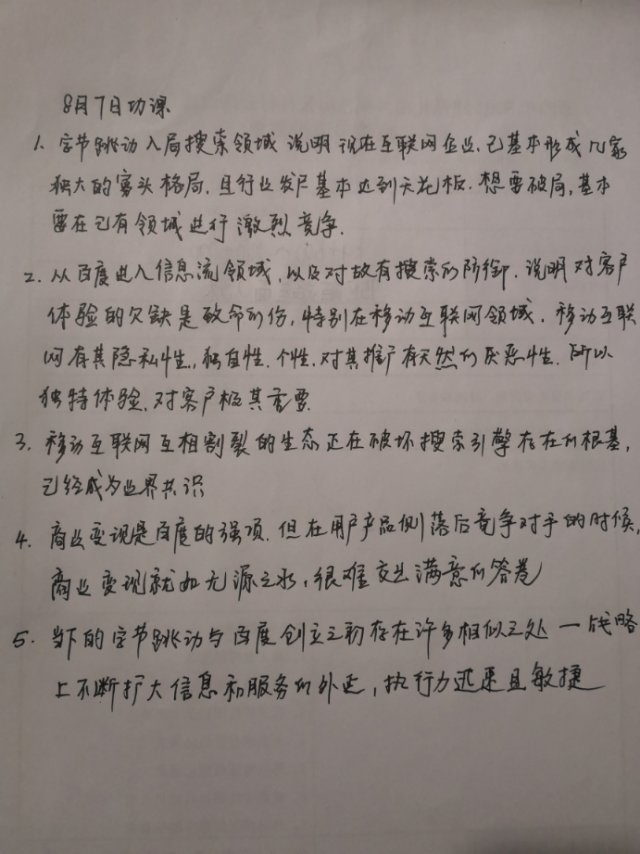 8月7日功课
1. 字节跳动入局搜索领域 说明现在互联网企业,已基本形成几家
独大的寡头格局,且行业发展基本达到天花板.想要破局,基本
要在已有领域进行激烈竞争.
2. 从百度进入信息流领域,以及对故有搜索的防御.说明对客户
体验的欠缺是致命的伤,特别在移动互联网领域.移动互联
网有其隐私性,独自性.个性.对其推广有天然的厌恶性.所以
独特体验.对客户极其重要.
3. 移动互联网互相割裂的生态正在破坏搜索引擎存在的根基,
已经成为业界共识
4. 商业变现是百度的强项.但在用户产品侧落后竞争对手的时候,
商业变现就如无源之水,很难交出满意的答卷
5. 当下的字节跳动与百度创立之初存在许多相似之处 一战略
上不断扩大信息和服务的外延,执行力迅速且敏捷